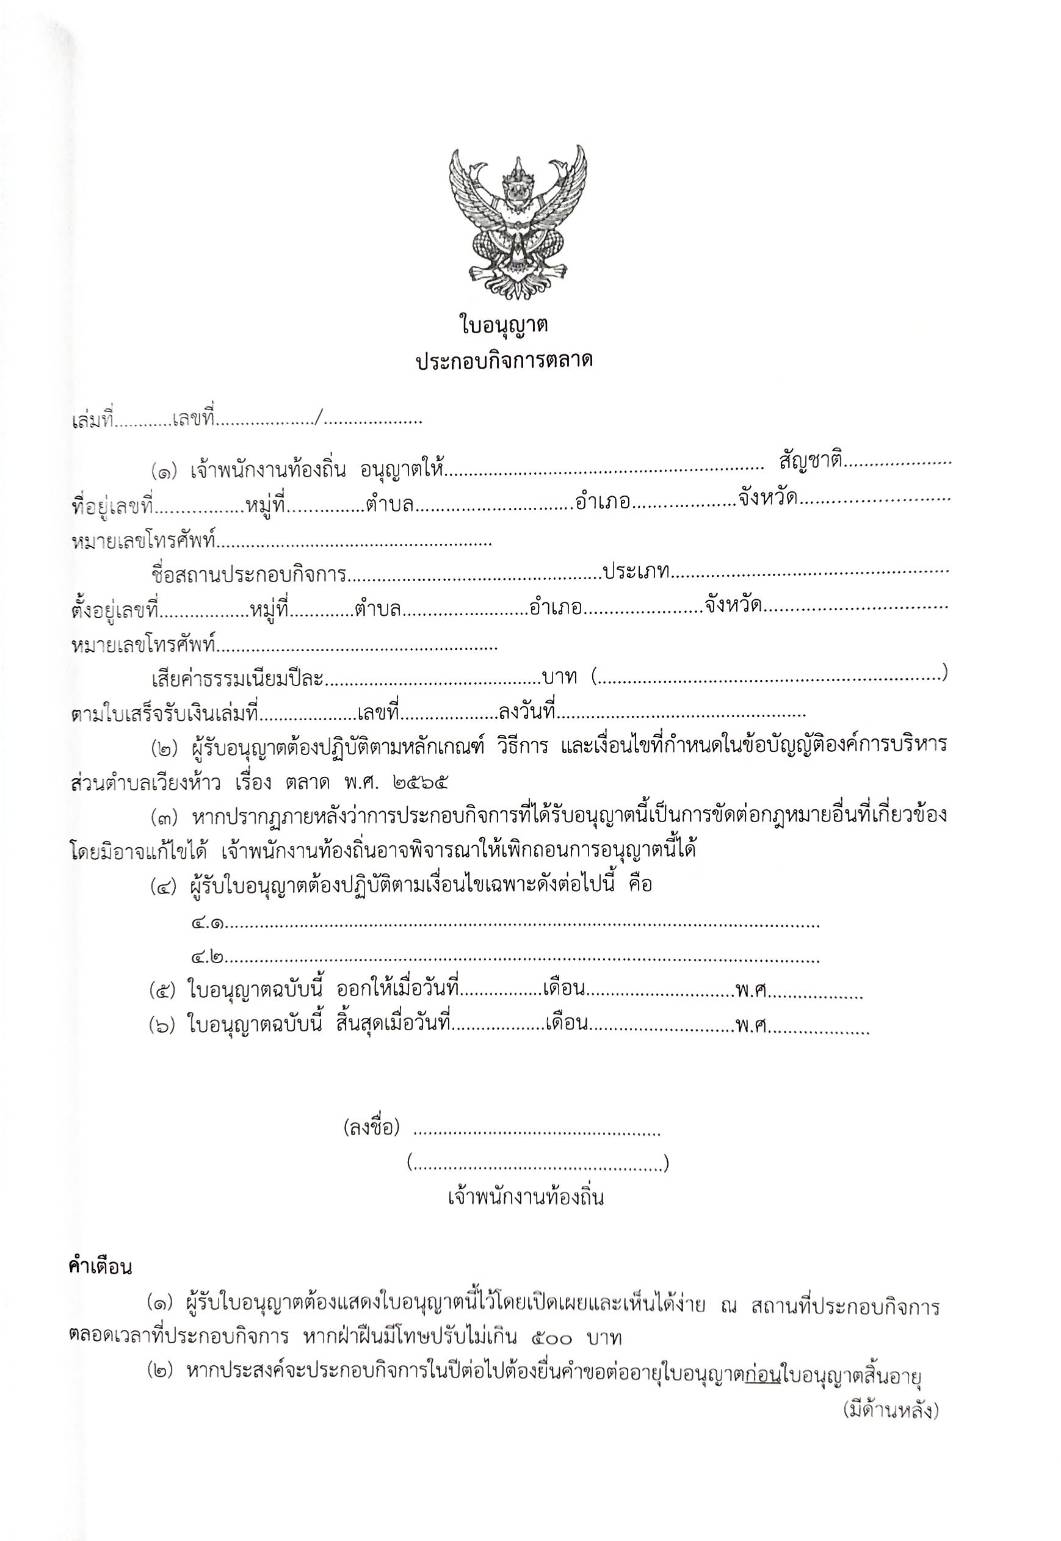 ใบอนุญาต
ประกอบกิจการตลาด
เล่มที่............เลขที่..................../....................
(๑) เจ้าพนักงานท้องถิ่น อนุญาตให้................................................................. สัญชาติ......................
ที่อยู่เลขที่..................หมู่ที่................ตำบล................................อำเภอ.....................จังหวัด...............................
หมายเลขโทรศัพท์........................................................
ชื่อสถานประกอบกิจการ....................................................ประเภท.........................................................
ตั้งอยู่เลขที่..................หมู่ที่.............ตำบล..........................อำเภอ........................จังหวัด......................................
หมายเลขโทรศัพท์.........................................................
เสียค่าธรรมเนียมปีละ............................................บาท (.......................................................................)
ตามใบเสร็จรับเงินเล่มที่....................เลขที่....................ลงวันที่...................................................
(๒) ผู้รับอนุญาตต้องปฏิบัติตามหลักเกณฑ์ วิธีการ และเงื่อนไขที่กำหนดในข้อบัญญัติองค์การบริหาร
ส่วนตำบลเวียงห้าว เรื่อง ตลาด พ.ศ. ๒๕๖๕
(๓) หากปรากฏภายหลังว่าการประกอบกิจการที่ได้รับอนุญาตนี้เป็นการขัดต่อกฎหมายอื่นที่เกี่ยวข้อง
โดยมิอาจแก้ไขได้ เจ้าพนักงานท้องถิ่นอาจพิจารณาให้เพิกถอนการอนุญาตนี้ได้
(๔) ผู้รับใบอนุญาตต้องปฏิบัติตามเงื่อนไขเฉพาะดังต่อไปนี้ คือ
๔.๑.........................................................................................................................
๔.๒.........................................................................................................................
(๕) ใบอนุญาตฉบับนี้ ออกให้เมื่อวันที่.................เดือน..............................พ.ศ...................
(๖) ใบอนุญาตฉบับนี้ สิ้นสุดเมื่อวันที่...................เดือน..............................พ.ศ.....................
(ลงชื่อ) ..................................................
(..................................................)
เจ้าพนักงานท้องถิ่น
คำเตือน
(๑) ผู้รับใบอนุญาตต้องแสดงใบอนุญาตนี้ไว้โดยเปิดเผยและเห็นได้ง่าย ณ สถานที่ประกอบกิจการ
ตลอดเวลาที่ประกอบกิจการ หากฝ่าฝืนมีโทษปรับไม่เกิน ๕๐๐ บาท
(๒) หากประสงค์จะประกอบกิจการในปีต่อไปต้องยื่นคำขอต่ออายุใบอนุญาตก่อนใบอนุญาตสิ้นอายุ
(มีด้านหลัง)